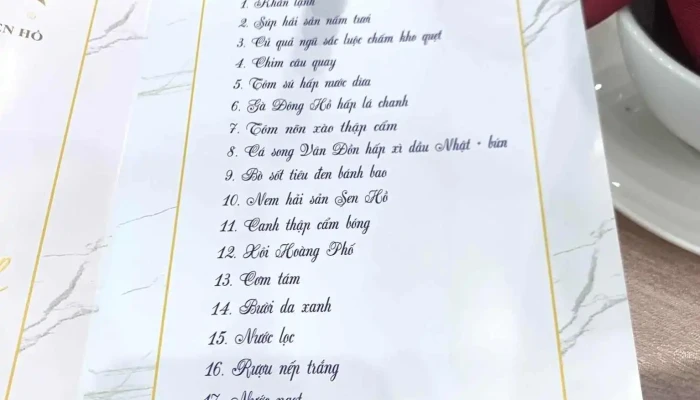 EN HỒ
1. Khăn lạnh
2. Súp hải sản nấm tươi
3. Củ quả ngũ sắc luộc chấm kho quẹt
4. Chim câu quay
5. Tôm sú hấp nước dừa
6. Gà Đông Hồ hấp lá chanh
7. Tôm nõn xào thập cẩm
8. Cá song Vân Đồn hấp xì dầu Nhật + bún
9. Bò sốt tiêu đen bánh bao
10. Nem hải sản Sen Hồ
11. Canh thập cẩm bóng
12. Xôi Hoàng Phố
13. Cơm tám
14. Bưởi da xanh
15. Nước lọc
16. Rượu nếp trắng
17. Nước ngọt